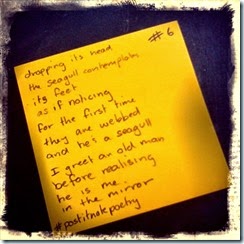 #6
dropping its head
the seagull contemplates
its feet
as if noticing
for the first time
they are webbed
and he's a seagull
I greet an old man
before realising
he is me
in the mirror
#postitnotepoetry